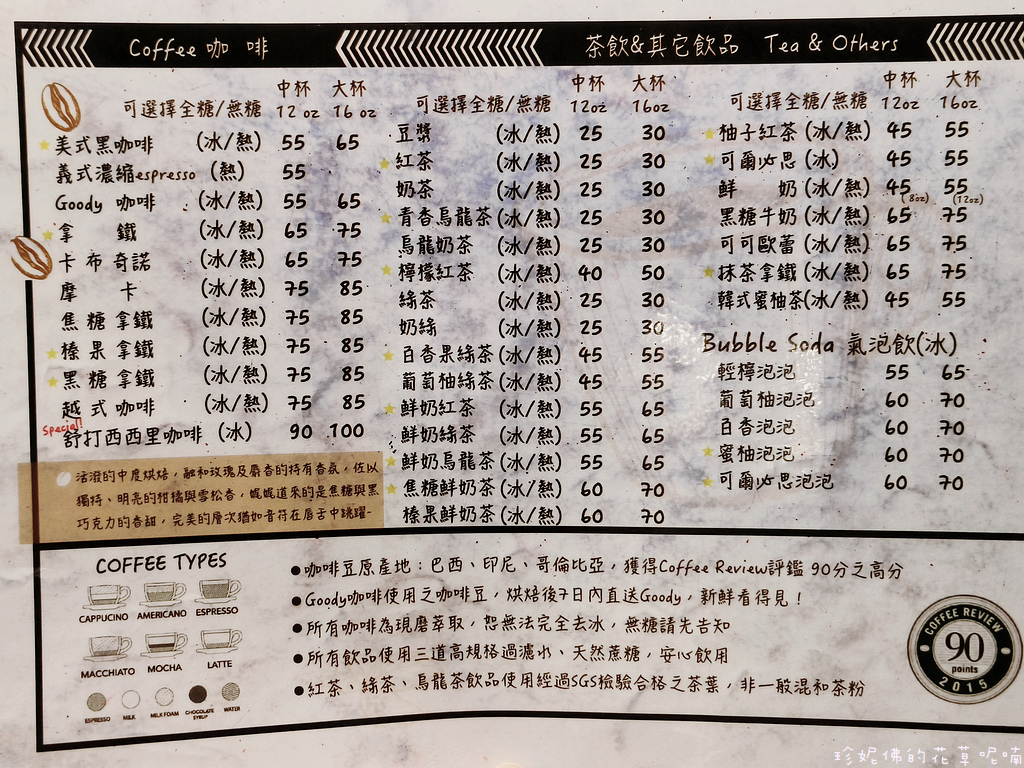 Coffee 咖 啡
中杯 大杯
可選擇全糖/無糖 12 oz 16 oz
美式黑咖啡 (冰/熱) 55 65
義式濃縮espresso (熱) 55
Goody 咖啡 (冰/熱) 55 65
拿 鐵 (冰/熱) 65 75
卡布奇諾 (冰/熱) 65 75
摩 卡 (冰/熱) 75 85
焦糖拿鐵 (冰/熱) 75 85
榛果拿鐵 (冰/熱) 75 85
黑糖拿鐵 (冰/熱) 75 85
越式咖啡 (冰/熱) 75 85
Special!!
舒打西西里咖啡 (冰) 90 100
活潑的中度烘焙，融和玫瑰及麝香的特有香氛，佐以
獨特、明亮的柑橘與雪松香，娓娓道來的是焦糖與黑
巧克力的香甜，完美的層次猶如音符在唇舌中跳躍~
茶飲&其它飲品 Tea & Others
中杯 大杯
可選擇全糖/無糖 12oz 16oz
豆漿 (冰/熱) 25 30
紅茶 (冰/熱) 25 30
奶茶 (冰/熱) 25 30
青香烏龍茶 (冰/熱) 25 30
烏龍奶茶 (冰/熱) 25 30
檸檬紅茶 (冰/熱) 40 50
綠茶 (冰/熱) 25 30
奶綠 (冰/熱) 25 30
百香果綠茶 (冰/熱) 45 55
葡萄柚綠茶 (冰/熱) 45 55
鮮奶紅茶 (冰/熱) 55 65
鮮奶綠茶 (冰/熱) 55 65
鮮奶烏龍茶 (冰/熱) 55 65
焦糖鮮奶茶 (冰/熱) 60 70
榛果鮮奶茶 (冰/熱) 60 70
中杯 大杯
可選擇全糖/無糖 12oz 16oz
柚子紅茶 (冰/熱) 45 55
可爾必思 (冰) 45 55
鮮 奶 (冰/熱) 45 (8oz) 55 (12oz)
黑糖牛奶 (冰/熱) 65 75
可可歐蕾 (冰/熱) 65 75
抹茶拿鐵 (冰/熱) 65 75
韓式蜜柚茶 (冰/熱) 45 55
Bubble Soda 氣泡飲(冰)
輕檸泡泡 55 65
葡萄柚泡泡 60 70
百香泡泡 60 70
蜜柚泡泡 60 70
可爾必思泡泡 60 70
COFFEE TYPES
CAPPUCINO AMERICANO ESPRESSO
MACCHIATO MOCHA LATTE
ESPRESSO MILK MILK FOAM CHOCOLATE SYRUP WATER
●咖啡豆原產地：巴西、印尼、哥倫比亞，獲得Coffee Review評鑑 90分之高分
●Goody咖啡使用之咖啡豆，烘焙後7日內直送Goody，新鮮看得見！
●所有咖啡為現磨萃取，恕無法完全去冰，無糖請先告知
●所有飲品使用三道高規格過濾水、天然蔗糖，安心飲用
●紅茶、綠茶、烏龍茶飲品使用經過SGS檢驗合格之茶葉，非一般混和茶粉
COFFEE REVIEW
90
points
2015
珍妮佛的花草呢喃